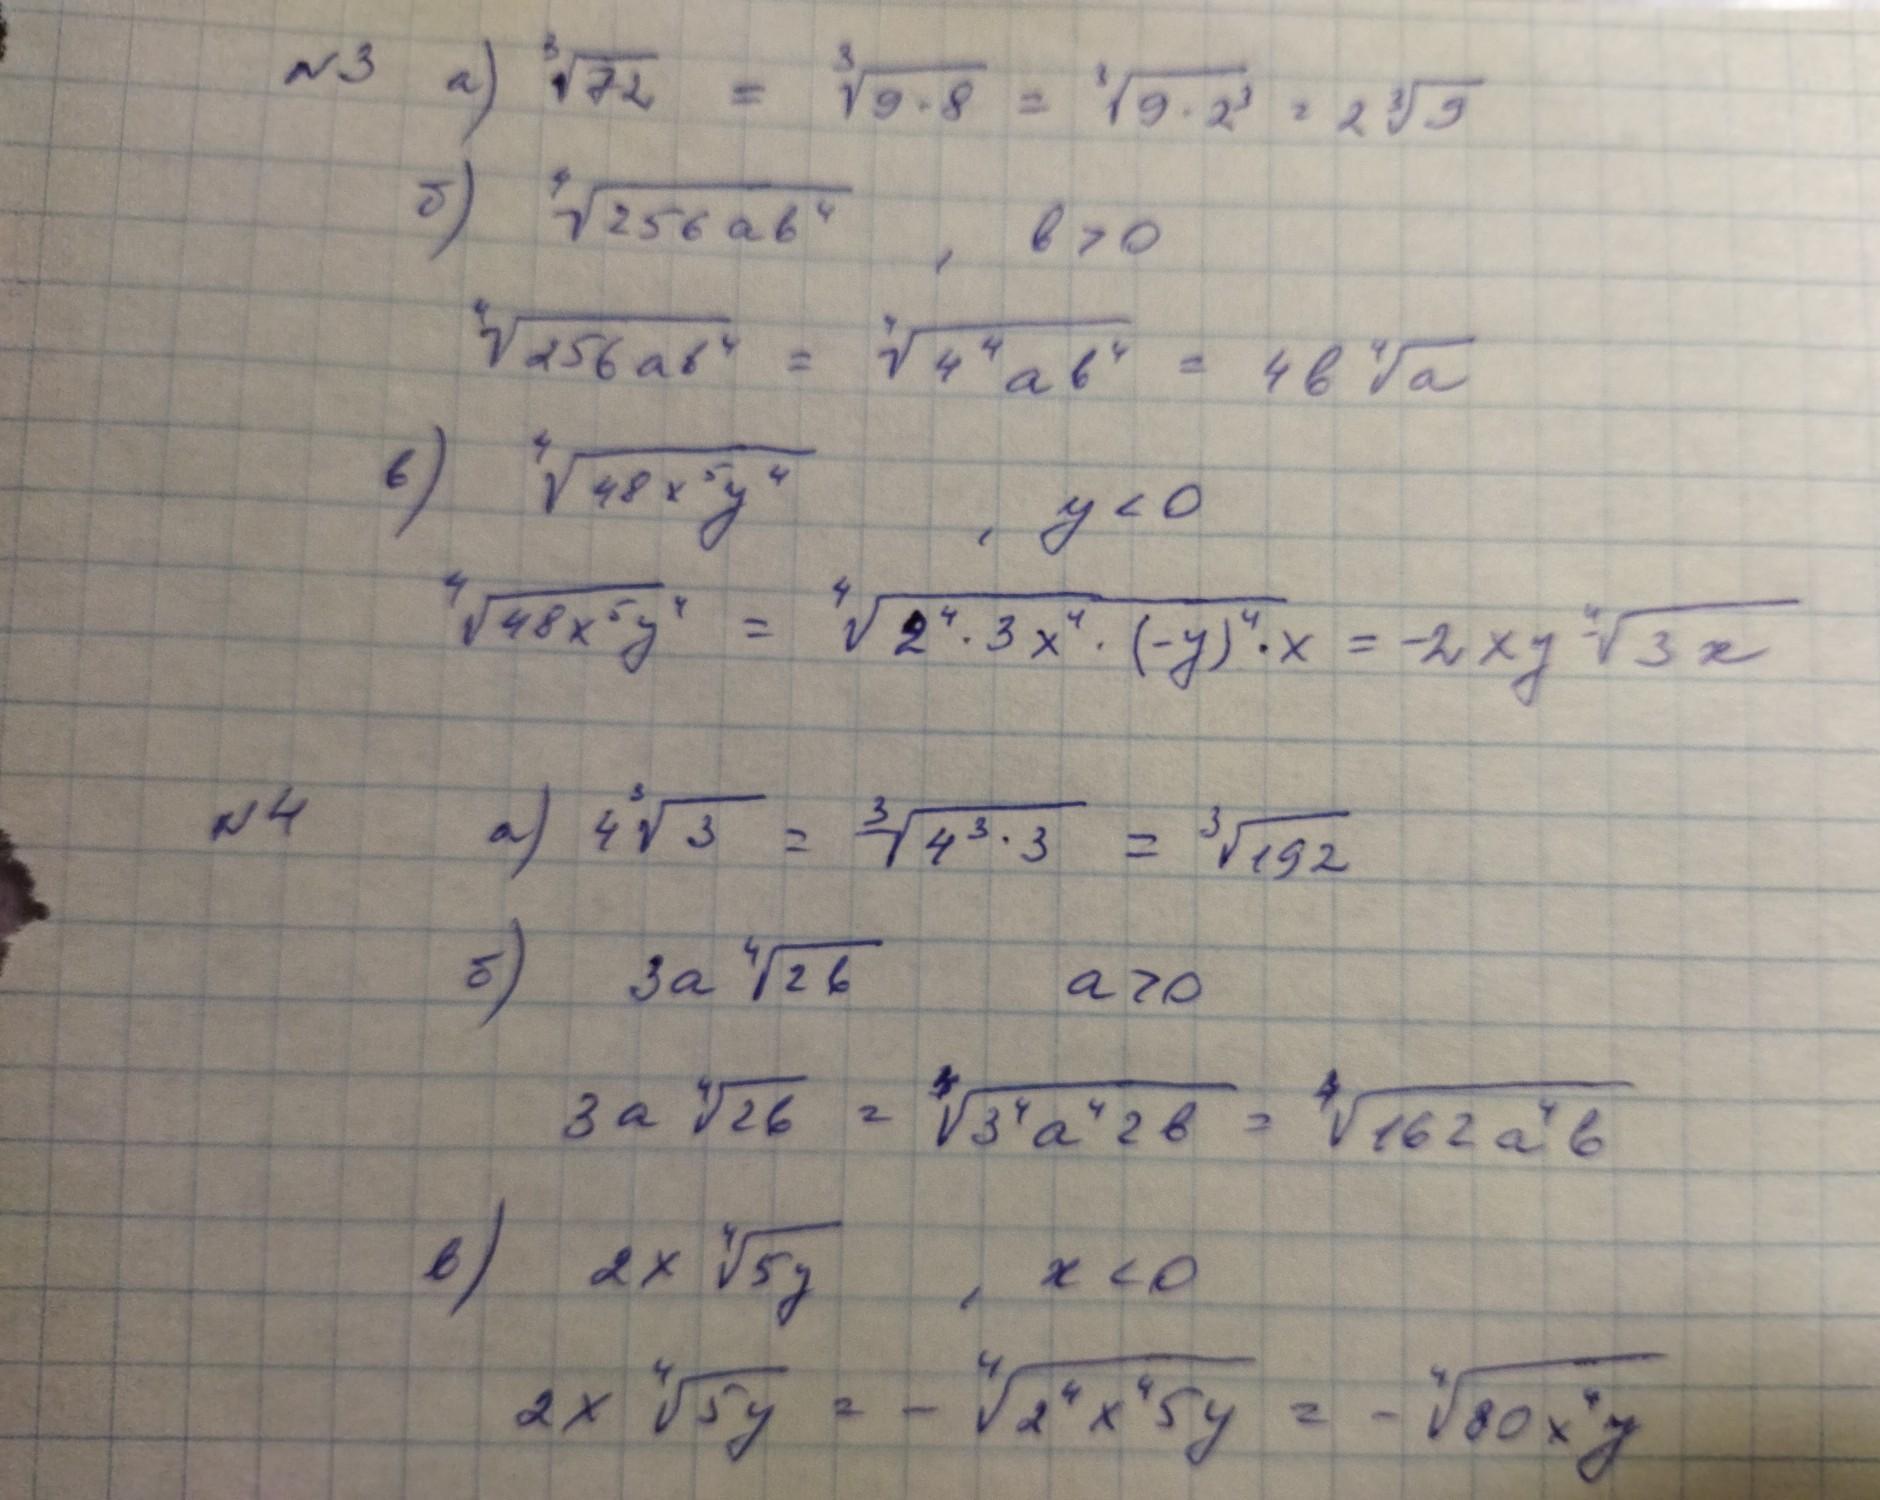 №3 а) ∛72 = ∛(9·8) = ∛(9·2³) = 2∛9
б) ∜(256ab⁴) , b > 0
∜(256ab⁴) = ∜(4⁴ab⁴) = 4b∜a
в) ∜(48x⁵y⁴) , y < 0
∜(48x⁵y⁴) = ∜(2⁴·3x⁴·(-y)⁴·x) = -2xy∜(3x)
№4 а) 4∛3 = ∛(4³·3) = ∛192
б) 3a∜(2b) a > 0
3a∜(2b) = ∜(3⁴a⁴2b) = ∜(162a⁴b)
в) 2x∜(5y) , x < 0
2x∜(5y) = -∜(2⁴x⁴5y) = -∜(80x⁴y)